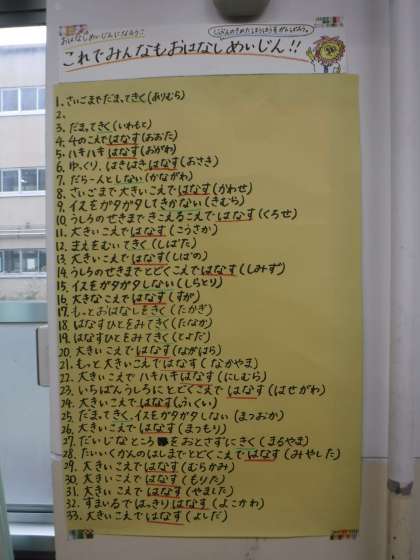 おはなしめいじんになろう!
じぶんのきめためあてをがんばろう。
これでみんなもおはなしめいじん!!
1. さいごまでだまってきく(ありむら)
2.
3. だまってきく(いわもと)
4. 4のこえではなす(おおた)
5. ハキハキはなす(おがわ)
6. ゆっくり、はきはきはなす(おさき)
7. だらーんとしない(かながわ)
8. さいごまで大きいこえではなす(かわせ)
9. イスをガタガタしてきかない(きむら)
10. うしろのせきまできこえるこえではなす(くろせ)
11. 大きいこえではなす(こうさか)
12. まえをむいてきく(しばた)
13. 大きいこえではなす(しばの)
14. うしろのせきまでとどくこえではなす(しみず)
15. イスをガタガタしない(しらとり)
16. 大きなこえではなす(すが)
17. もっとおはなしをきく(たかぎ)
18. はなすひとをみてきく(たなか)
19. はなすひとをみてきく(とよだ)
20. 大きいこえではなす(ながはら)
21. もっと大きいこえではなす(なかやま)
22. 大きいこえでハキハキはなす(にしむら)
23. いちばんうしろにとどくこえではなす(はせがわ)
24. 大きいこえではなす(ふくい)
25. だまってきく、イスをガタガタしない(まつおか)
26. 大きいこえではなす(まつもり)
27. だいじなところをおとさずにきく(まるやま)
28. たいいくかんのはしまでとどくこえではなす(みやした)
29. 大きいこえではなす(むらかみ)
30. 大きいこえではなす(もりた)
31. 大きいこえではなす(やました)
32. すまいるではっきりはなす(よこかわ)
33. 大きいこえではなす(よしだ)